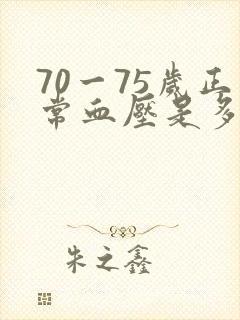 70一75歲正
常血壓是多
朱之鑫